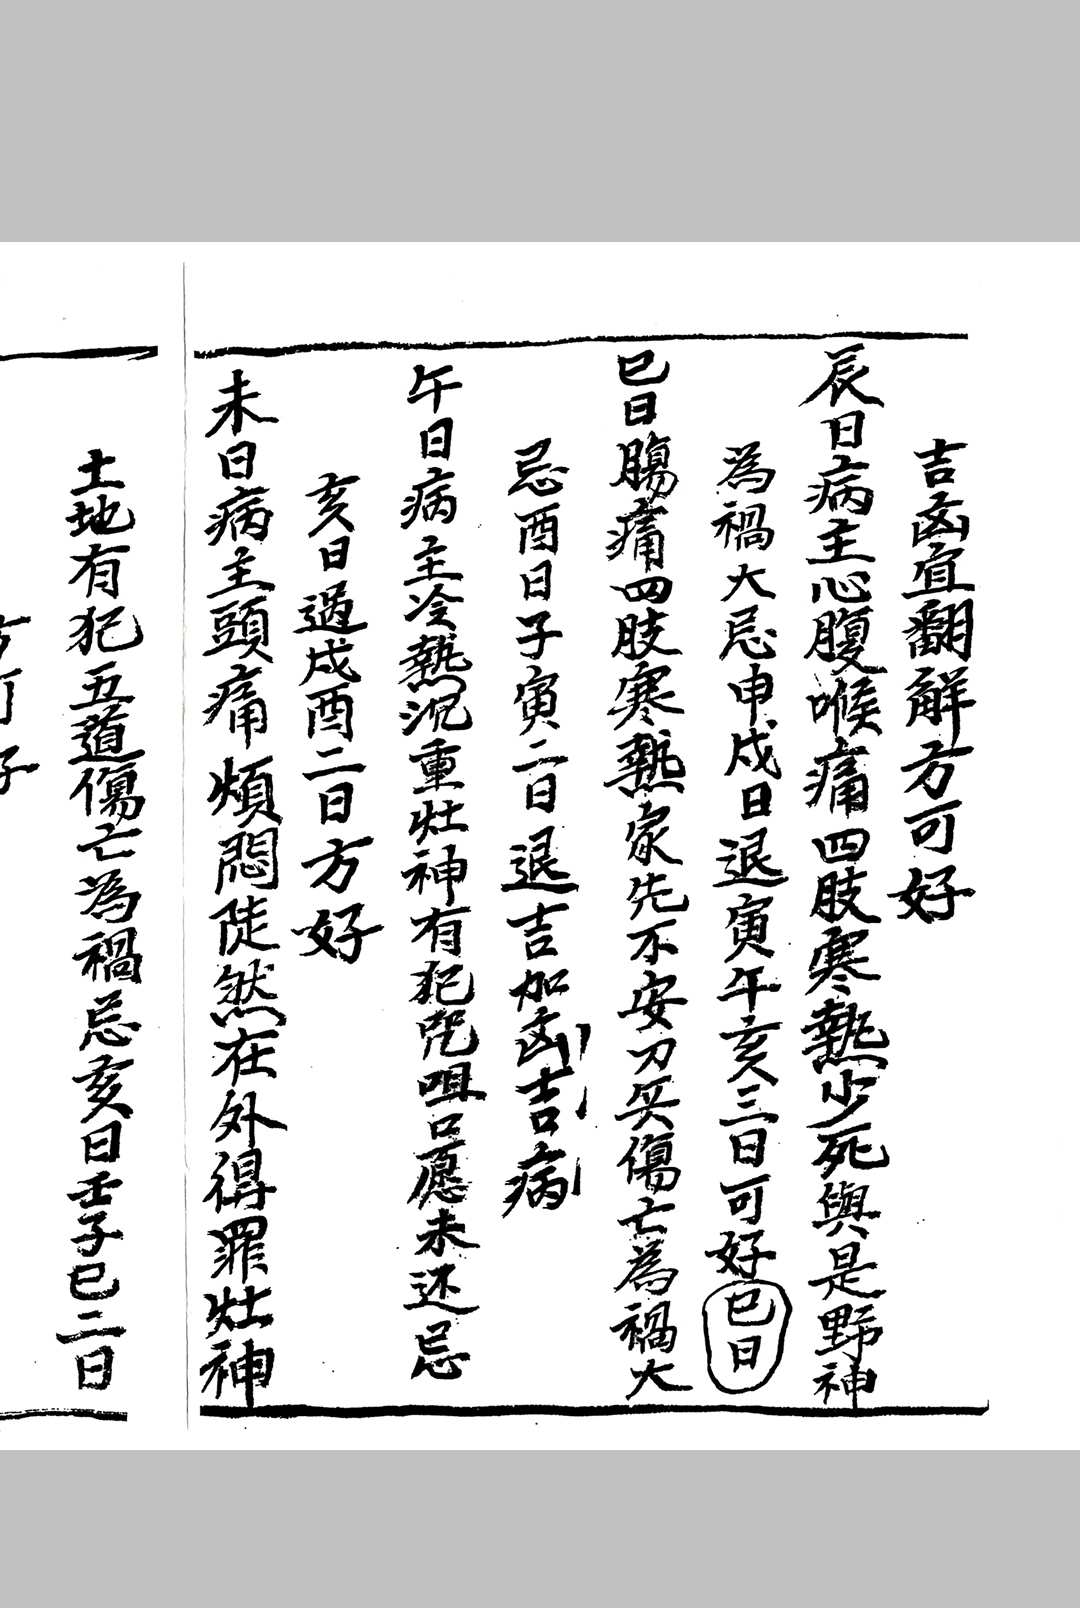 吉凶宜翻解方可好
辰日病主心腹喉痛四肢寒熱少死與是野神
為禍大忌申戌日退寅午亥三日可好巳日
巳日腸痛四肢寒熱家先不安刀兵傷亡為禍大
忌酉日子寅二日退吉加凶吉病
午日病主冷熱沉重灶神有犯咒咀口愿未还忌
亥日過戌酉二日方好
未日病主頭痛煩悶陡然在外得罪灶神
土地有犯五道傷亡為禍忌亥日壬子巳二日